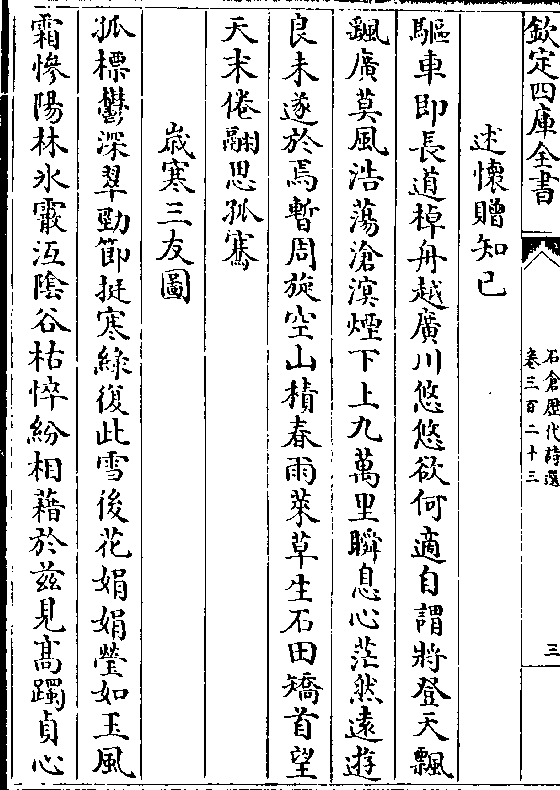 欽定四庫全書
石倉歷代詩選
卷三百二十三
三
述懷贈知己
驅車即長道棹舟越廣川悠悠欲何適自謂將登天飄
飄廣莫風浩蕩滄溟煙下上九萬里瞬息心茫然遠遊
良未遂於焉暫周旋空山積春雨萊草生石田矯首望
天末倦翮思孤騫
歲寒三友圖
孤標鬱深翠勁節挺寒綠復此雪後花娟娟瑩如玉風
霜慘陽林氷霰沍陰谷枯悴紛相藉於兹見髙躅貞心